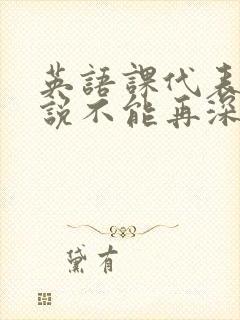 英語課代表
說不能再深
黛有